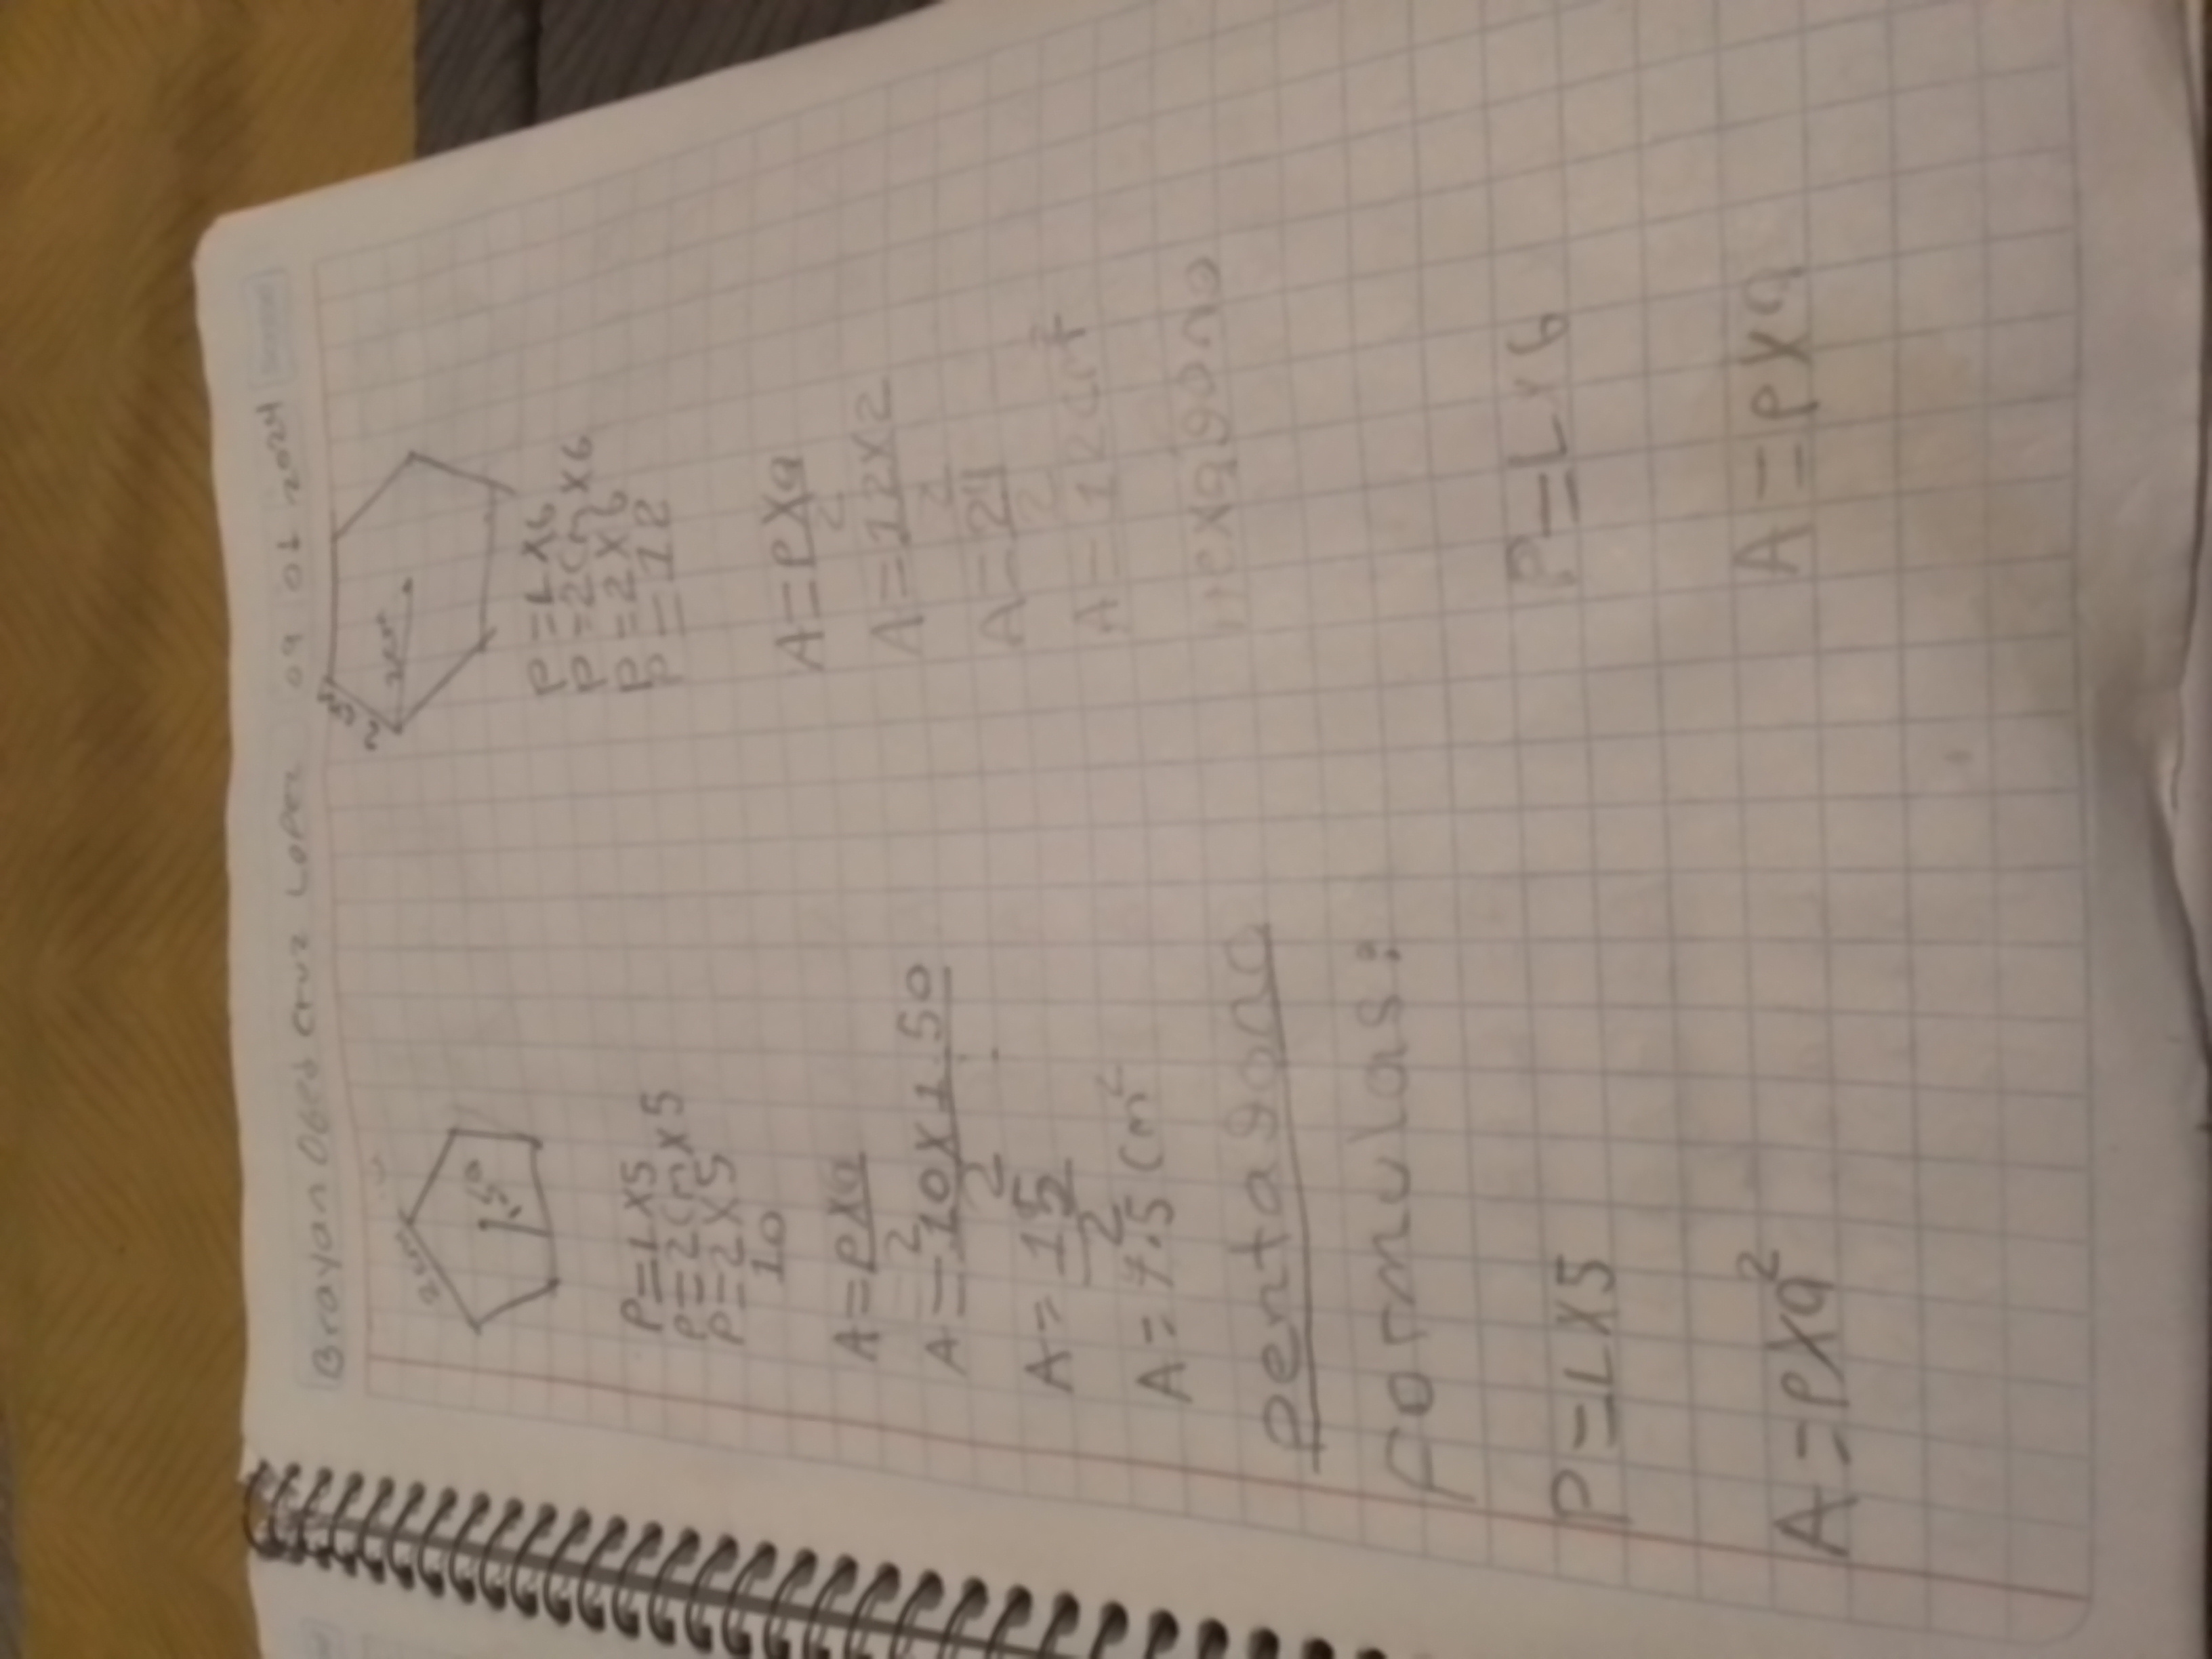 Brayan Obed Cruz Lopez 09 01 2024
2cm
1.50
P=LX5
P=2cmX5
P=2X5
10
A=PXa
2
A=10X1.50
2
A=15
2
A=7.5cm²
Pentagono
Formulas:
P=LX5
A=PXa
2
2cm
P=LX6
P=2cmX6
P=2X6
P=12
A=PXa
2
A=12X2
2
A=24
2
A=12cm²
Hexagono
P=LX6
A=PXa